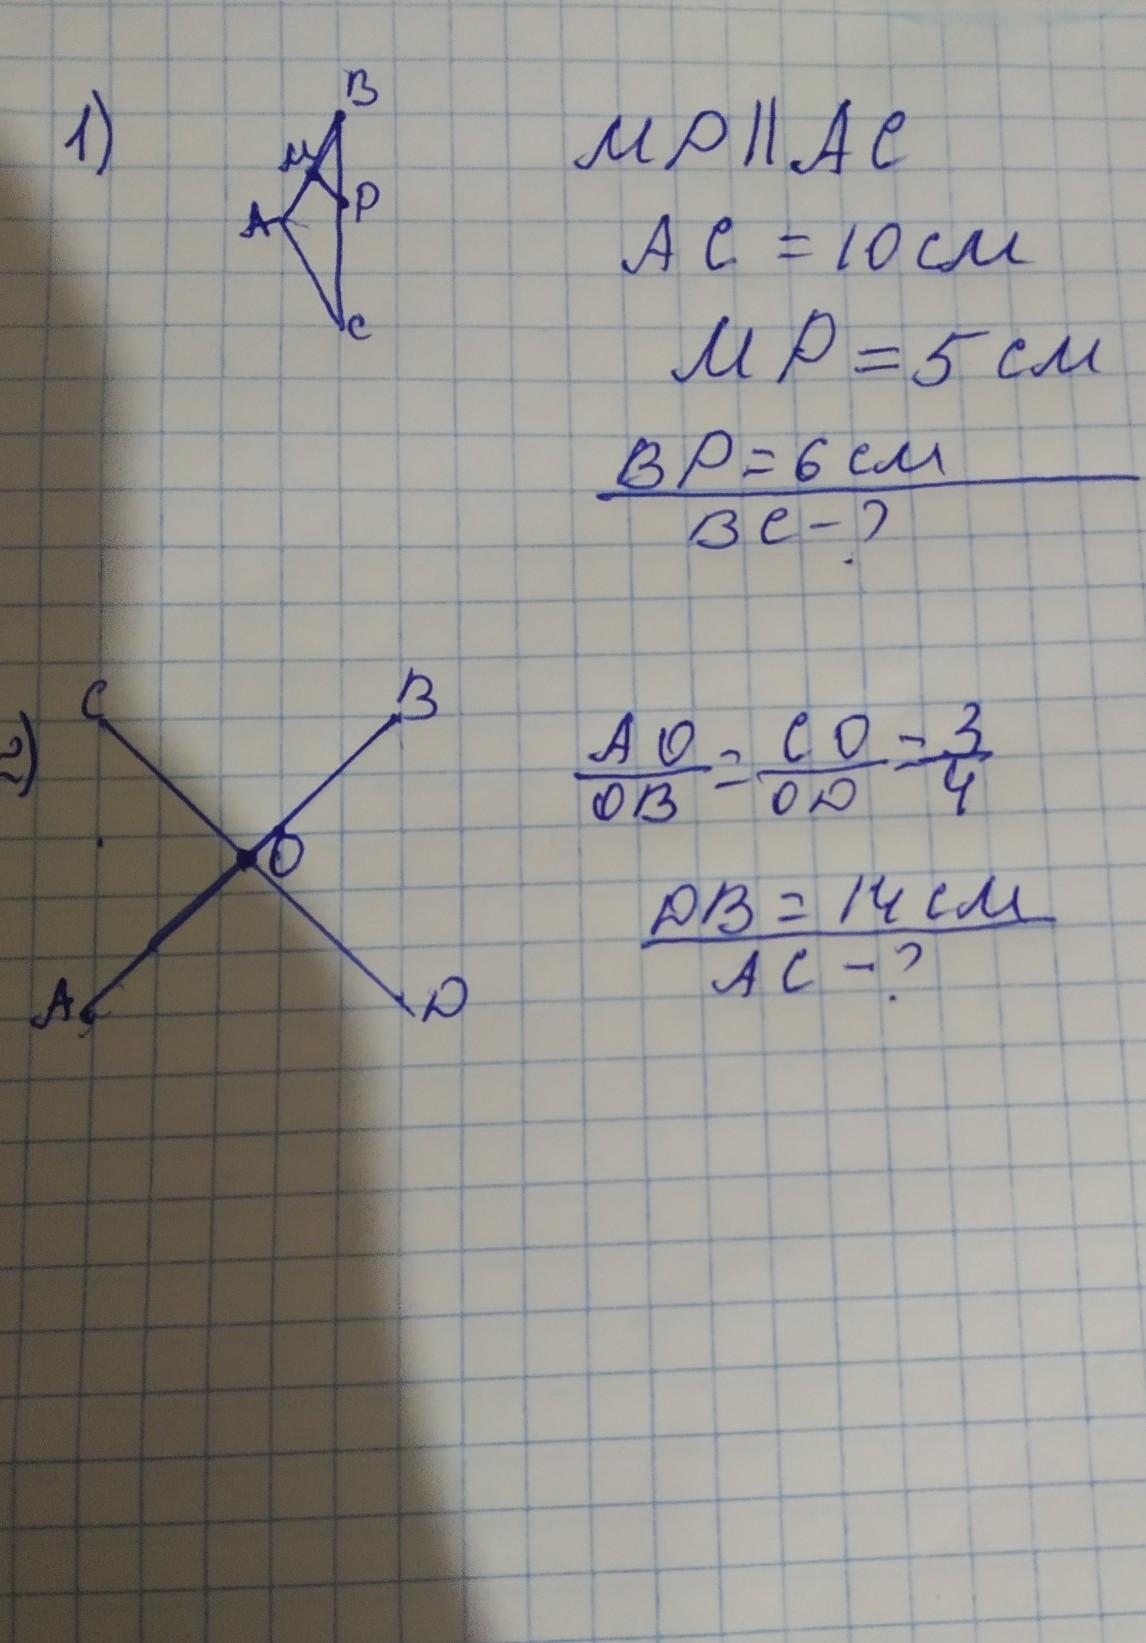 1)
B
M
P
A
C
MP || AC
AC = 10 см
MP = 5 см
BP = 6 см
BC - ?
2)
C
B
O
A
D
AO/OB = CO/OD = 3/4
DB = 14 см
AC - ?